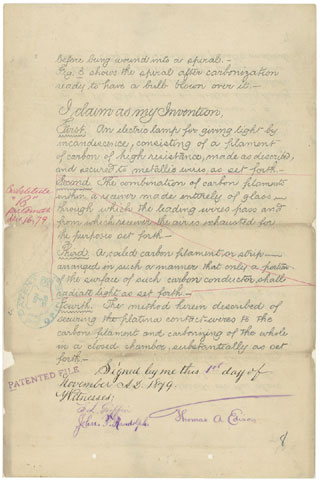 before being wound into a spiral.-
Fig 3 shows the spiral after carbonization
ready to have a bulb blown over it.-
I claim as my Invention.
First. An electric lamp for giving light by
incandescence, consisting of a filament
of carbon of high resistance, made as described,
and secured to metallic wires, as set forth-
Second. The combination of carbon filaments
within a receiver made entirely of glass
through which the leading wires pass and
from which receiver the air is exhausted for
the purposes set forth-
Third. A coiled carbon filament or strip
arranged in such a manner that only a portion
of the surface of such carbon conductor shall
radiate light, as set forth-
Fourth. The method herein described of
securing the platina contact wires to the
carbon filament and carbonizing of the whole
in a closed chamber, substantially as set
forth-
Signed by me this 1st day of
November A.D. 1879.
Witnesses;
Thomas A. Edison
Substitute
"B"
Dec 16, 79
PATENTED FILE
8